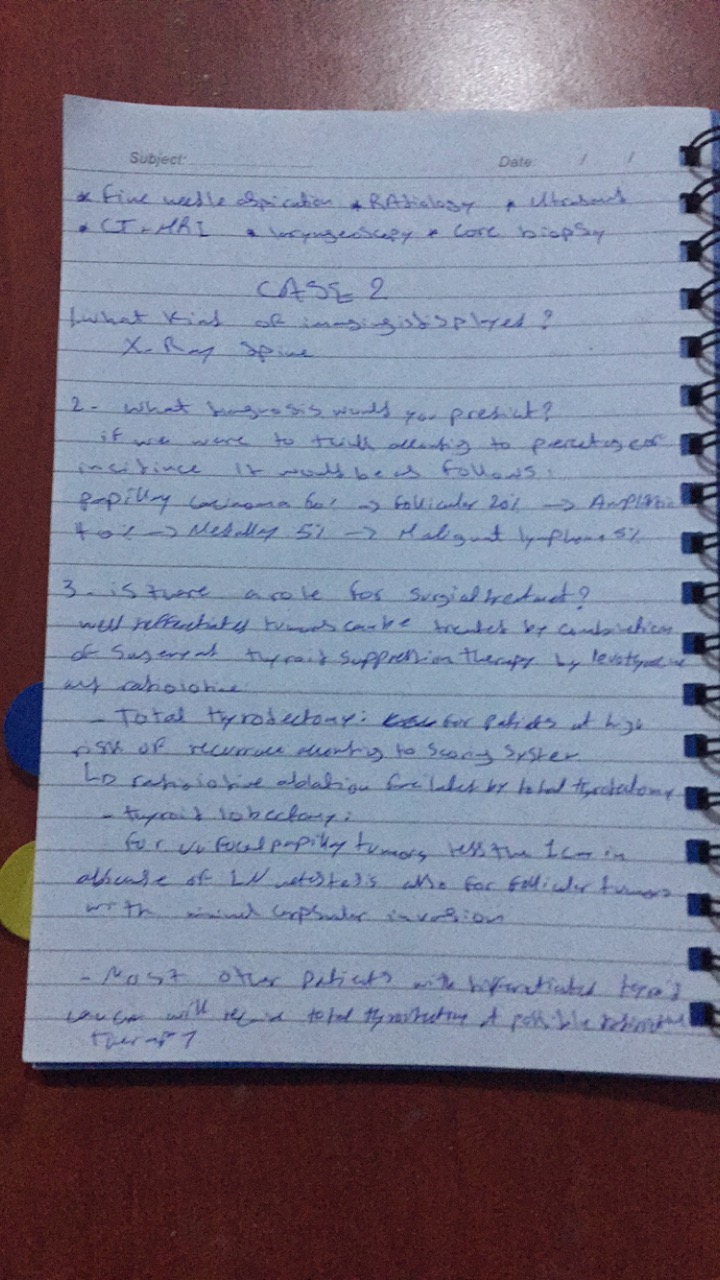 Subject: Date: / /
* Fine needle aspiration * RAdiology * Ultrasound
* CT - MRI * laryngoscopy * Core biopsy
CASE 2
1. what kind of imaging is displayed?
X-Ray Spine
2- what diagnosis would you predict?
if we were to think according to percetage of
it would be as follows:
papillary carcinoma 60% → follicular 20% →
→ 5% → Malignant lymphoma 5%
3- is there a role for surgical treatment?
well tumors can be treated by combination
of thyroid suppression therapy by
- Total thyrodectomy: for patients at high
risk of recurrence according to scoring system
ablation by total
- thyroid lobectomy:
for papillary tumors less than 1cm in
absence of LN also for follicular tumors
with capsular invasion
- Most other patients with thyroid
cancer will require total & possible
therapy